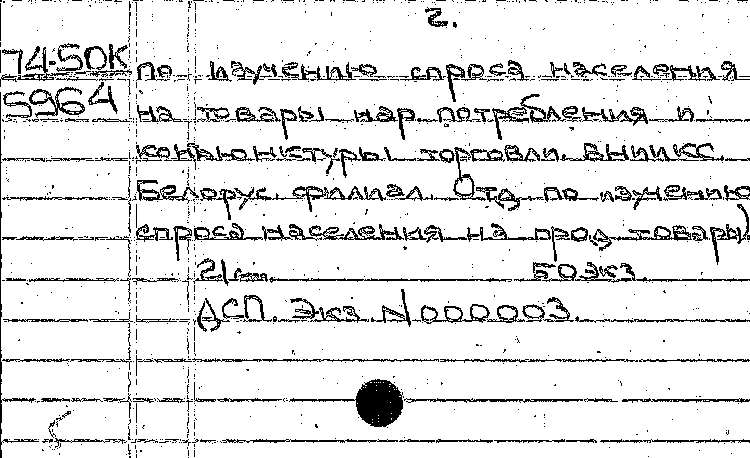 2.
74-50К по изучению спроса населения
5964 на товары нар. потребления и
конъюнктуры торговли. ВНИИКС.
Белорус. филиал. Отд. по изучению
спроса населения на прод. товары)
21 см. 50 экз.
ДСП. Экз. N 000003.